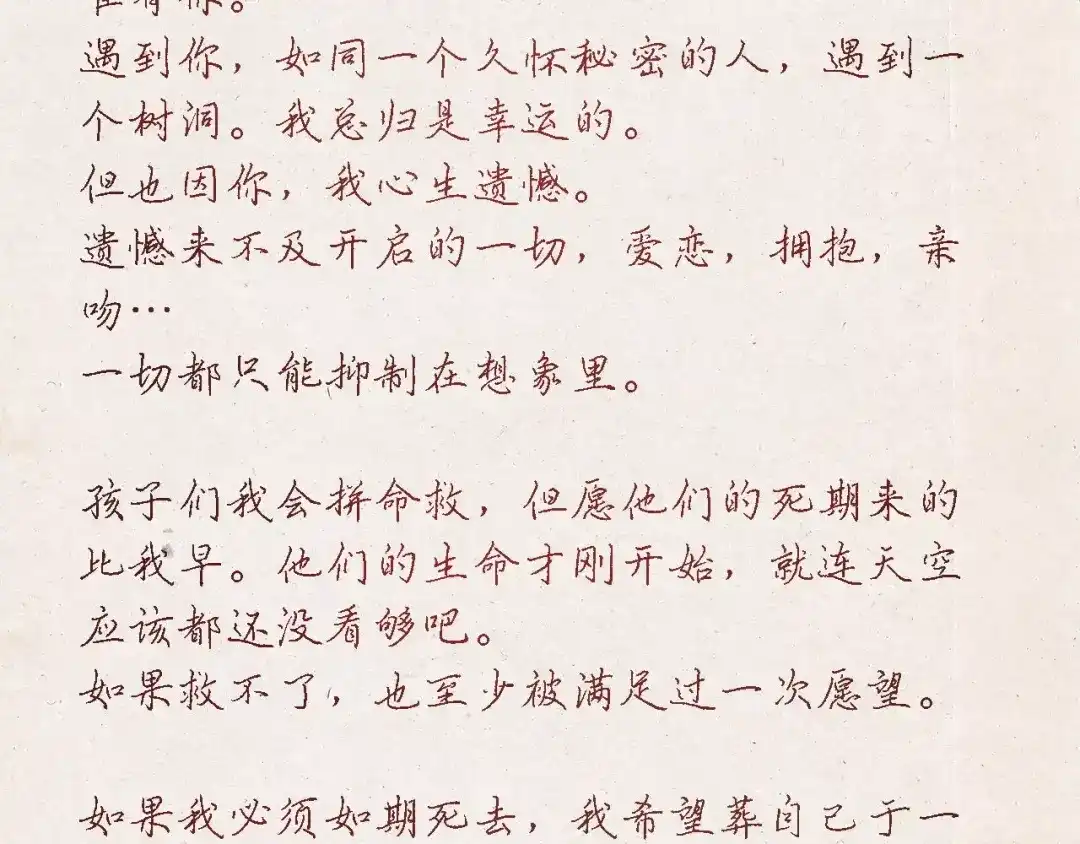 遇到你，如同一个久怀秘密的人，遇到一
个树洞。我总归是幸运的。
但也因你，我心生遗憾。
遗憾来不及开启的一切，爱恋，拥抱，亲
吻…
一切都只能抑制在想象里。
孩子们我会拼命救，但愿他们的死期来的
比我早。他们的生命才刚开始，就连天空
应该都还没看够吧。
如果救不了，也至少被满足过一次愿望。
如果我必须如期死去，我希望葬自己于一